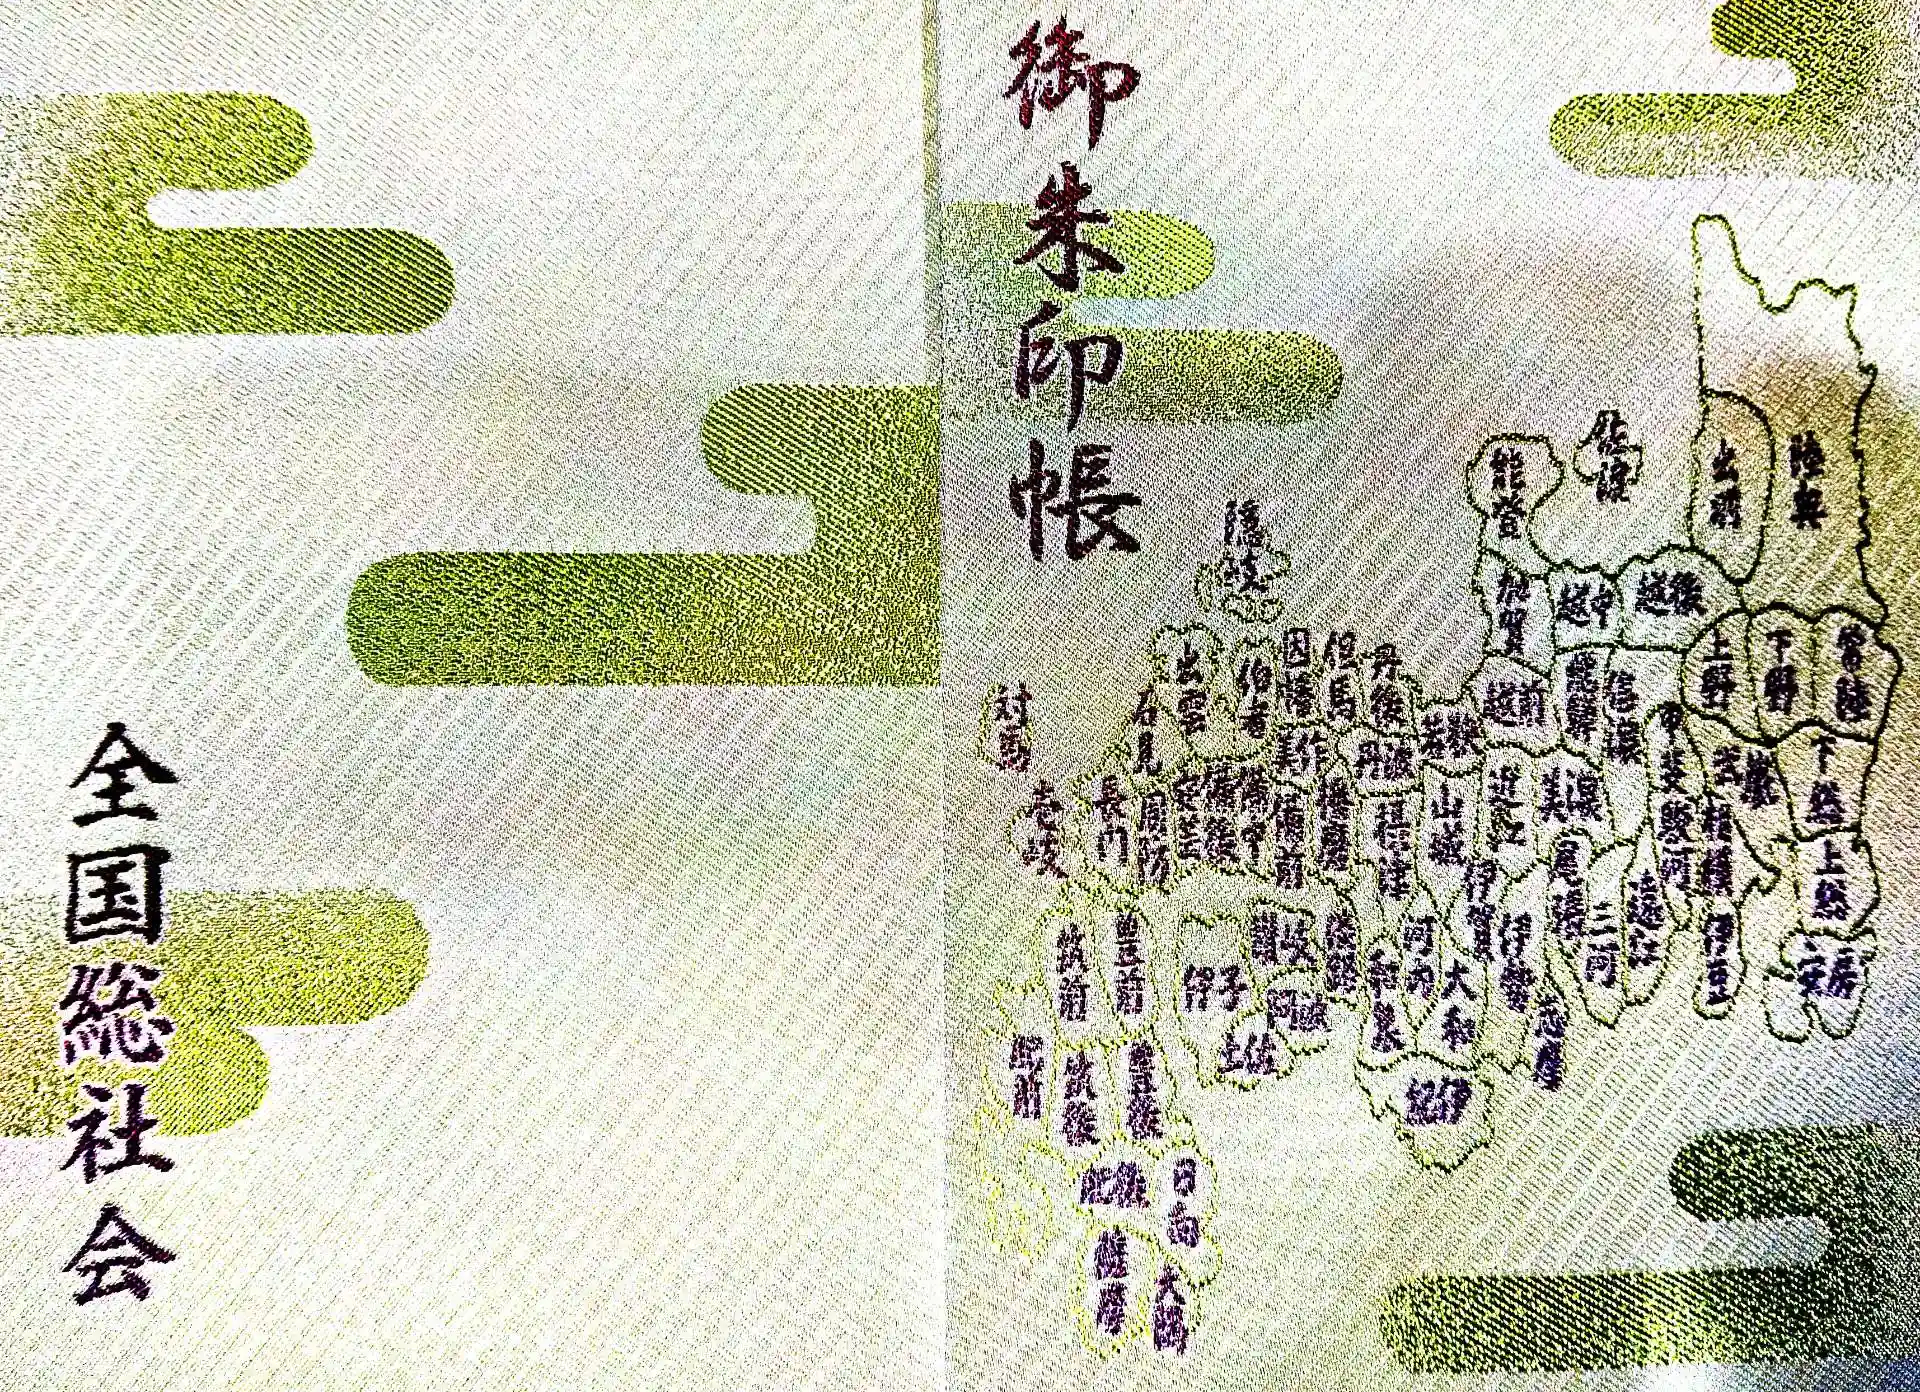 御朱印帳
陸奥
出羽
佐渡
能登
加賀
越中
越後
越前
飛騨
信濃
上野
下野
常陸
下総
上総
安房
武蔵
相模
甲斐
駿河
伊豆
遠江
三河
尾張
美濃
近江
若狭
山城
伊賀
伊勢
志摩
大和
紀伊
河内
和泉
摂津
丹波
丹後
但馬
因幡
伯耆
隠岐
出雲
石見
美作
播磨
備前
備中
備後
安芸
周防
長門
讃岐
伊予
阿波
土佐
淡路
対馬
壱岐
筑前
豊前
肥前
筑後
豊後
肥後
日向
薩摩
大隅
全国総社会